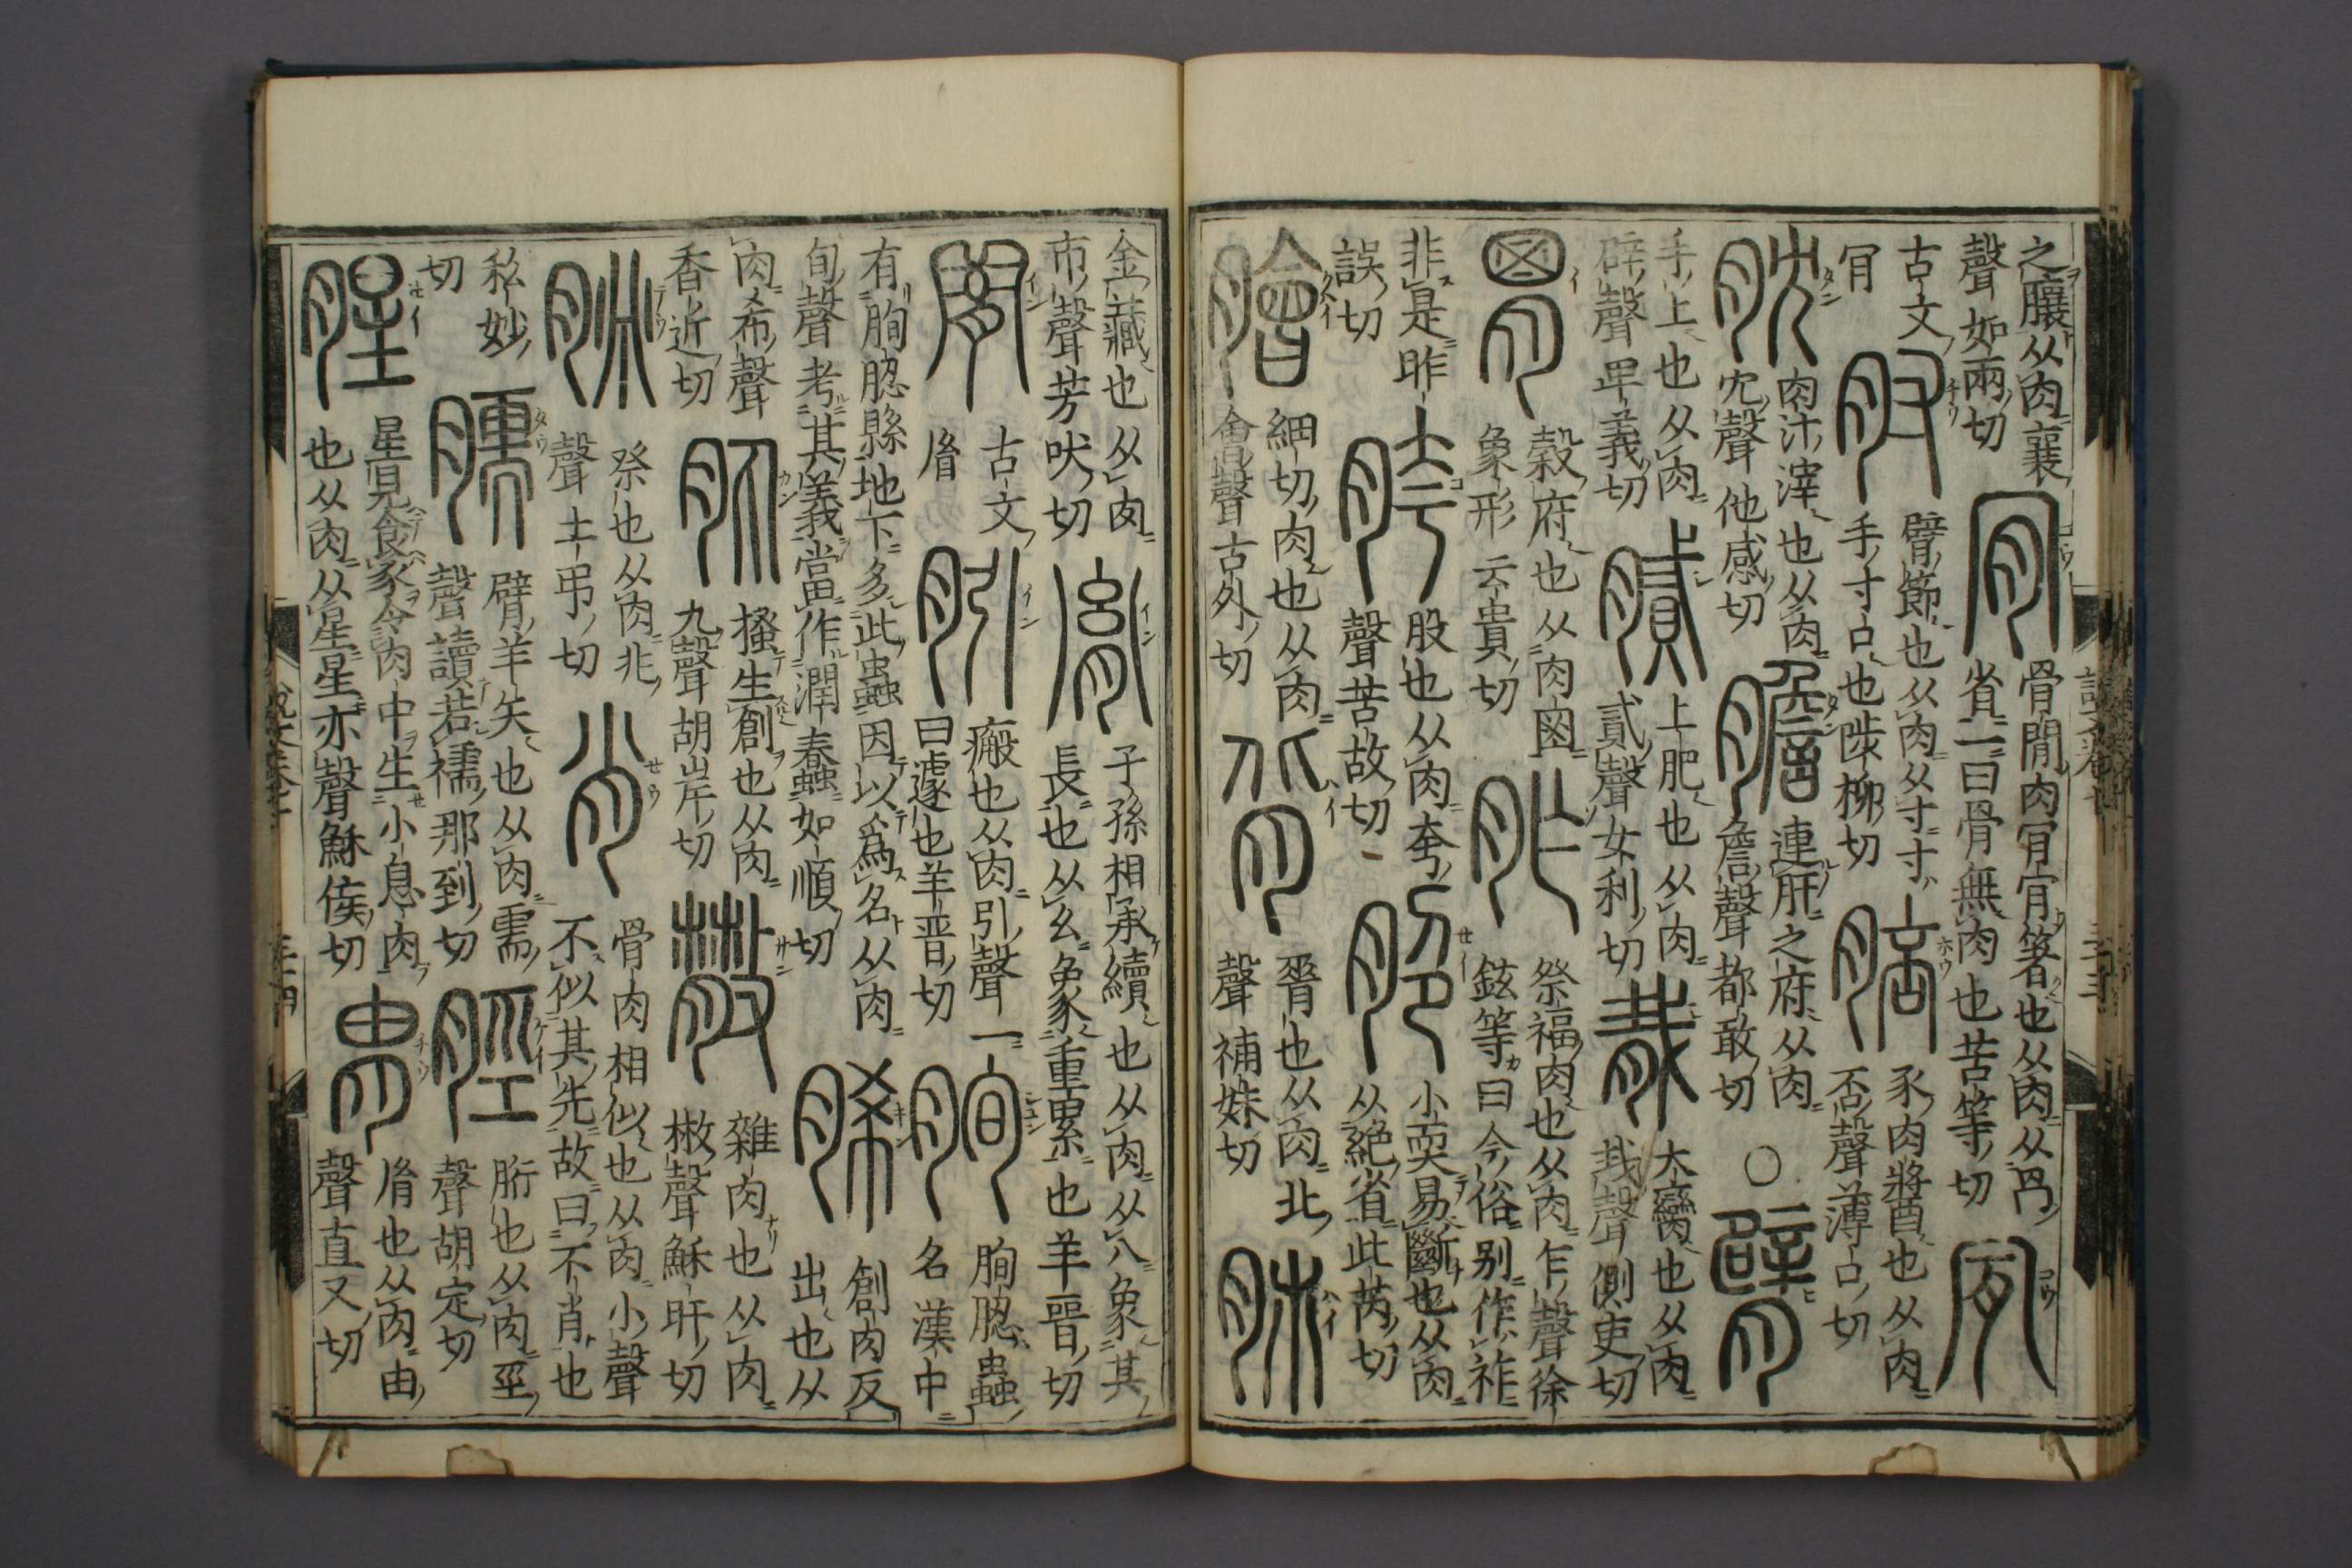 之䑋从肉襄聲如兩切 肎 骨閒肉肎肎箸也从肉从冎省一曰骨無肉也苦等切 肎
古文肎 肘 臂節也从肉从寸寸手寸口也陟柳切 䏽 豕肉醬也从肉否聲薄口切
肬 肉汁滓也从肉冘聲他感切 膽 連肝之府从肉詹聲都敢切 〇 臂
手上也从肉辟聲卑義切 膩 上肥也从肉貳聲女利切 胾 大臠也从肉𢦏聲側吏切
胃 穀府也从肉囟象形云貴切 胙 祭福肉也从肉乍聲徐鉉等曰今俗别作祚
非是昨誤切 胯 股也从肉夸聲苦故切 脃 小耎易斷也从肉从絕省此芮切
膾 細切肉也从肉會聲古外切 背 𦟝也从肉北聲補妹切 肺
金藏也从肉巿聲芳吠切 胤 子孫相承續也从肉从八象其長也从幺象重累也羊晉切
古文胤 瘢也从肉引聲一曰遽也羊晉切 朐䏰蟲名漢中
有朐䏰縣地下多此蟲因以爲名从肉旬聲考其義當作潤蠢如順切 脪 創肉反出也从
肉希聲香近切 肒 搔生創也从肉丸聲胡岸切 雜肉也从肉㪔聲穌旰切
脁 祭也从肉兆聲土弔切 肖 骨肉相似也从肉小聲不似其先故曰不肖也
私妙切 臑 臂羊矢也从肉需聲讀若襦那到切 脛 胻也从肉巠聲胡定切
腥 星見食豕令肉中生小息肉也从肉从星星亦聲穌佞切 胄 胤也从肉由聲直又切